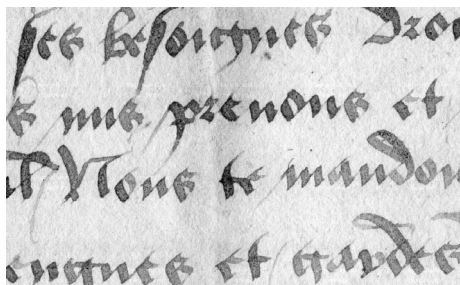 ses besoignes Dron
s nus prenons et
al Nous te mandon
engnes et gardes